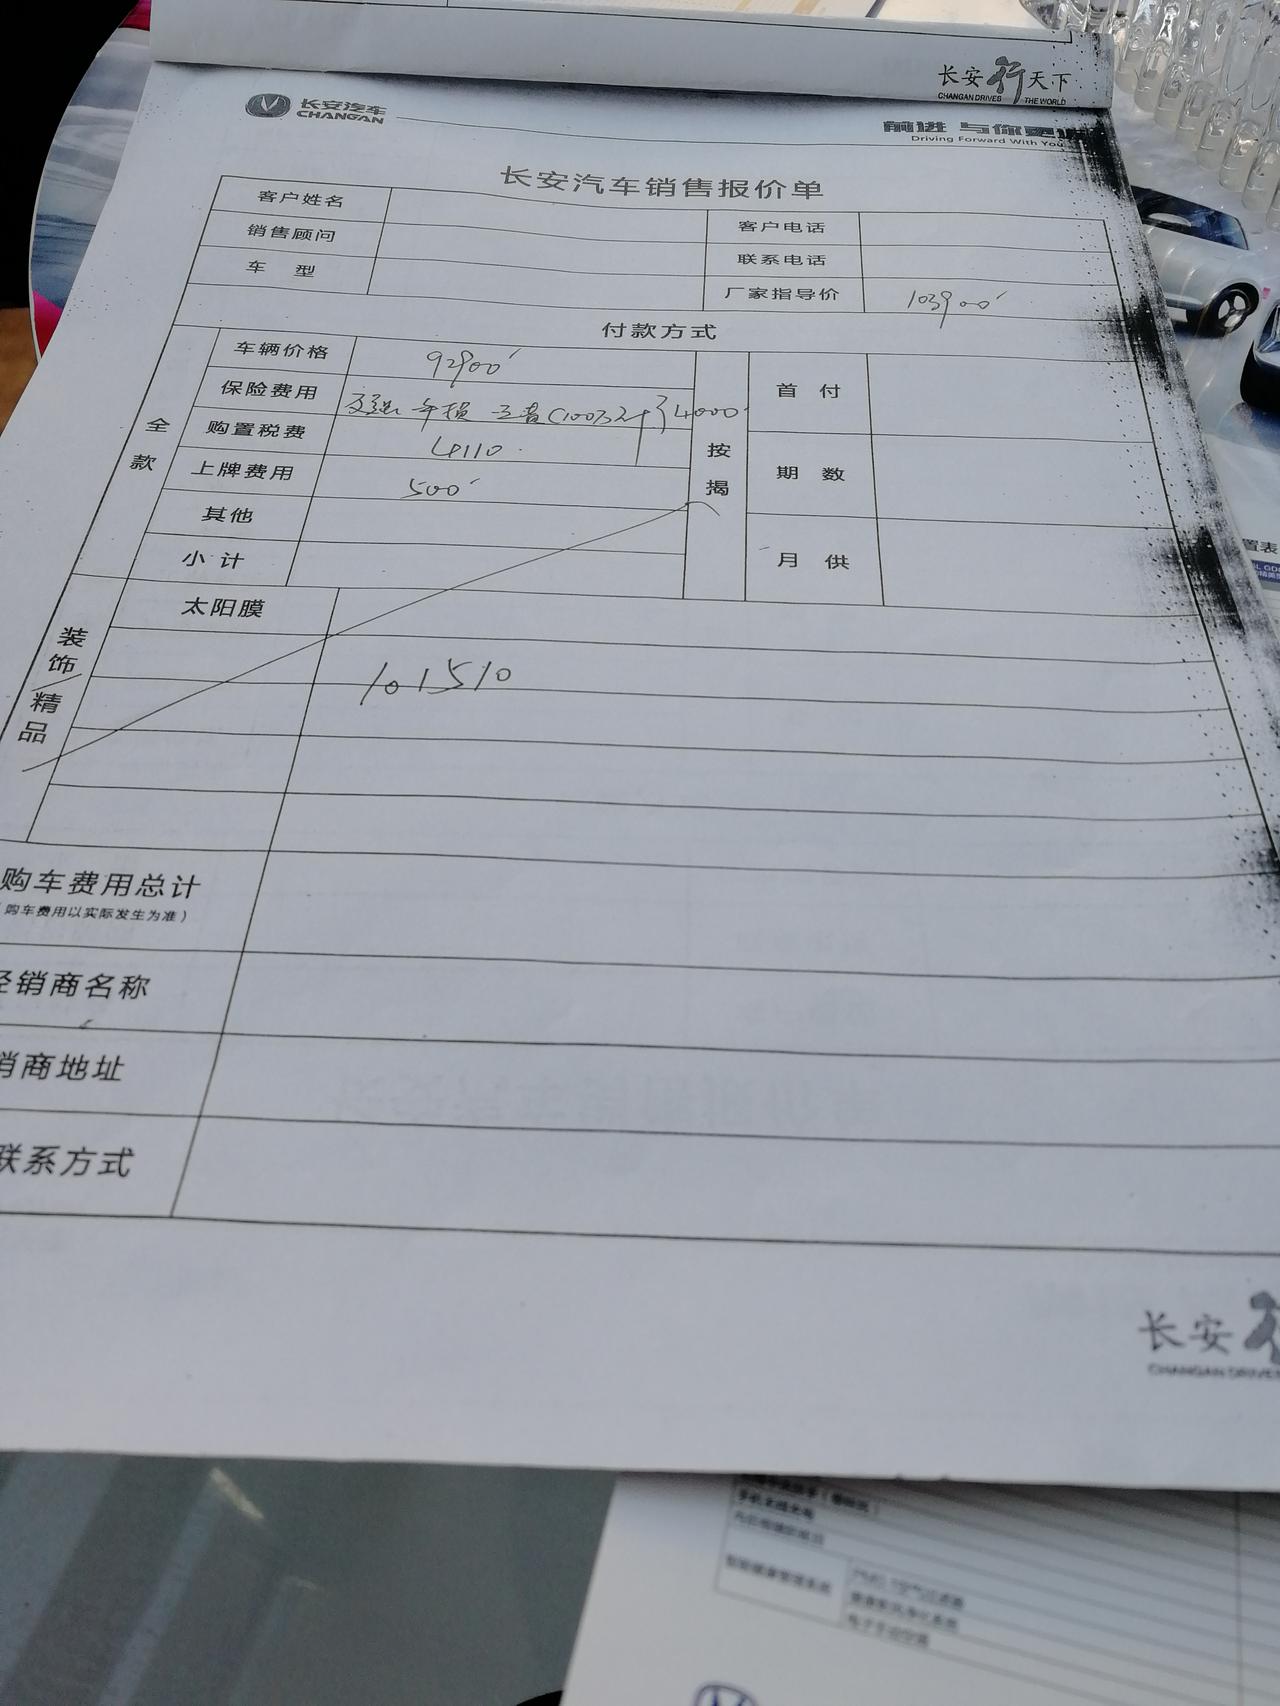 长安行天下
CHANGAN DRIVES THE WORLD
长安汽车
CHANGAN
前进 与你更
Driving Forward With You
长安汽车销售报价单
客户姓名 客户电话
销售顾问 联系电话
车 型 厂家指导价 103900
付款方式
全款
车辆价格 92900
保险费用 交强 车损 三者(100万) 4000
购置税费 4110
上牌费用 500
其他
小计
按揭
首 付
期 数
月 供
装饰/精品
太阳膜
101510
购车费用总计
(购车费用以实际发生为准)
经销商名称
销商地址
联系方式
长安行
CHANGAN DRIVES
置表